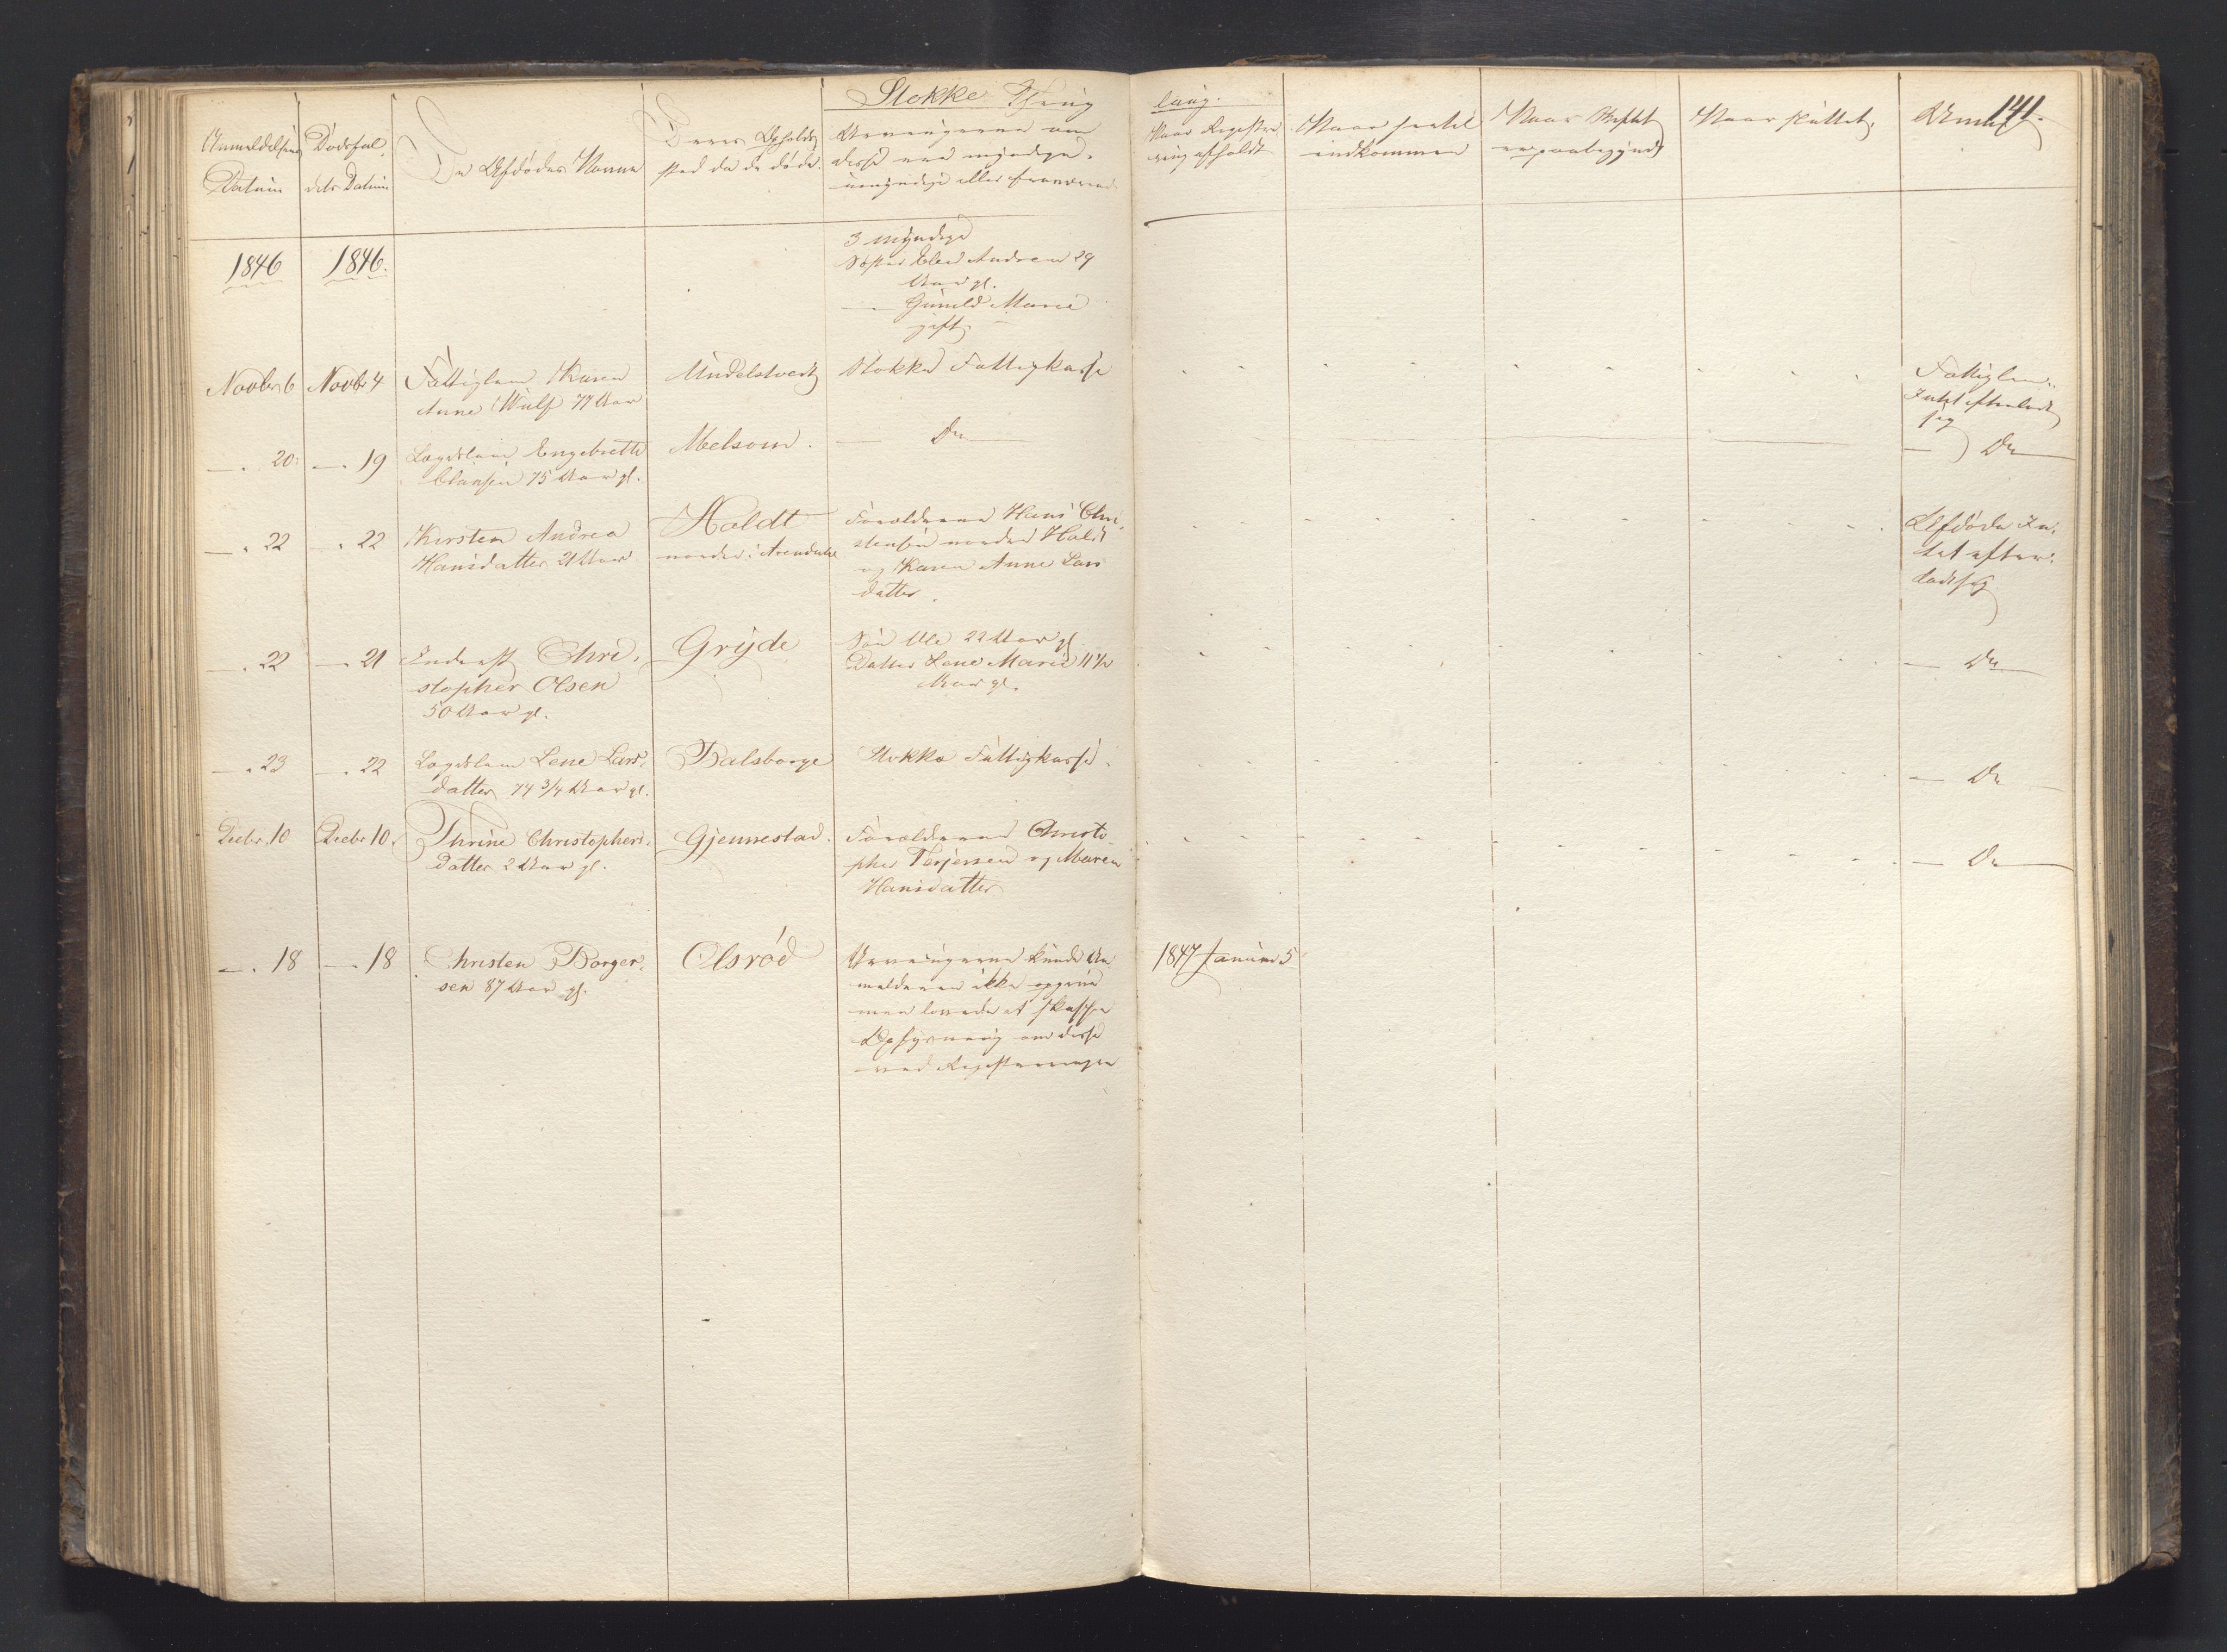 Stokke Thing
laug.
141.
Anmeldelsens
Datum
Dødsfal-
dets Datum
De Afdødes Navne
Deres Opholds
sted da de døde.
Arvingerne om
disse ere myndige,
umyndige eller fraværende
Naar Registre
ring afholdt
Naar
indkommen
Naar Skiftet
er paabegyndt
Naar sluttet.
1846
1846.
3 myndige
Søster Elen Andrea 29
Aar gl.
— Gunild Marie
gift.
Novbr 6
Novbr 4
Fattiglem Karen
Anne Wulf 77 Aar
Undelstvedt
Stokke Fattigkasse
Fattiglem.
Intet efterladt
sig
—. 20.
—. 19
Lægdslem Engebrette
Clausen 75 Aar gl.
Melsom.
— Do
— Do
—. 22
—. 22
Kirsten Andrea
Hansdatter 21 Aar
Holdt
nordre i Arendal
Forældrene Hans Chri-
stensen nordre Holdt
og Karen Anne Lars
datter.
Afdøde In-
tet efter-
ladt sig
—. 22
—. 21
Inderst Chri-
stopher Olsen
50 Aar gl.
Gryde
Søn Ole 22 Aar gl
Datter Lene Marie 11 1/2
Aar gl.
— Do
—. 23
—. 22
Lægdslem Lene Lars-
datter 74 3/4 Aar gl.
Dalsborge
Stokke Fattigkasse.
— Do
Decbr. 10
Decbr 10.
Thrine Christophers-
datter 2 Aar gl.
Gjennestad.
Forældrene Christo-
pher Terjersen og Maren
Hansdatter
— Do
—. 18
—. 18
Christen Borger-
sen 87 Aar gl.
Olsrød
Arvingerne kunde An-
melderen ikke opgive
men lovede at skaffe
Oplysning om disse
ved Registreringen
1847 Januar 5